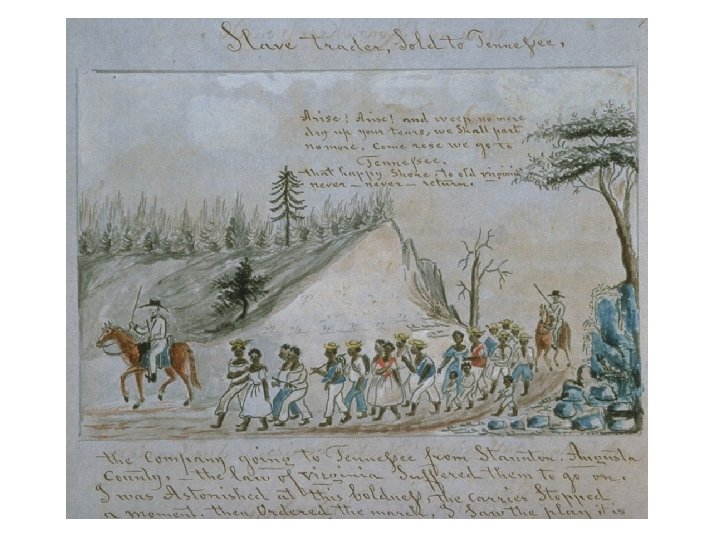 Slave trader, Sold to Tennessee,
Arise! Arise! and weep no more
dry up your tears, we Shall part
no more. Come rose we go to
Tennessee,
that happy Shore, to old virginia
never – never – return.
the Company going to Tennessee from Staunton. Augusta
County, – the law of virginia Suffered them to go on.
I was Astonished at this boldness, the carrier Stopped
a moment. then Ordered the march, I Saw the play it is